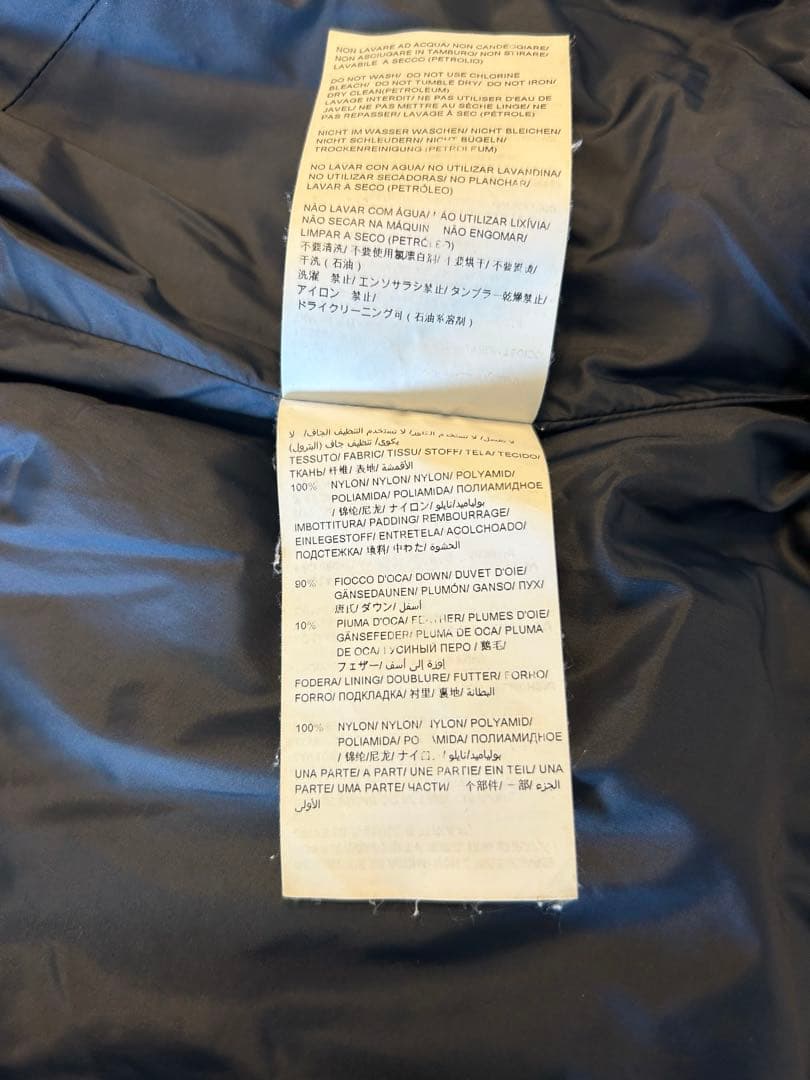 NON LAVARE AD ACQUA/ NON CANDEGGIARE/
NON ASCIUGARE IN TAMBURO/ NON STIRARE/
LAVABILE A SECCO (PETROLIO)
DO NOT WASH/ DO NOT USE CHLORINE
BLEACH/ DO NOT TUMBLE DRY/ DO NOT IRON/
DRY CLEAN(PETROLEUM)
LAVAGE INTERDIT/ NE PAS UTILISER D'EAU DE
JAVEL/ NE PAS METTRE AU SÈCHE LINGE/ NE
PAS REPASSER/ LAVAGE À SEC (PÉTROLE)
NICHT IM WASSER WASCHEN/ NICHT BLEICHEN/
NICHT SCHLEUDERN/ NICHT BÜGELN/
TROCKENREINIGUNG (PETROLEUM)
NO LAVAR CON AGUA/ NO UTILIZAR LAVANDINA/
NO UTILIZAR SECADORAS/ NO PLANCHAR/
LAVAR A SECO (PETRÓLEO)
NÃO LAVAR COM ÁGUA/ NÃO UTILIZAR LIXÍVIA/
NÃO SECAR NA MÁQUIN NÃO ENGOMAR/
LIMPAR A SECO (PETRÓLEO)
不要清洗/ 不要使用氯漂白剂/ 不要烘干/ 不要熨烫/
干洗 ( 石油 )
洗濯 禁止/ エンソサラシ禁止/ タンブラー乾燥禁止/
アイロン 禁止/
ドライクリーニング可 ( 石油系溶剤 )
لا تستخدم التنظيف الجاف/ لا
يكوى/ تنظيف جاف (البترول)
TESSUTO/ FABRIC/ TISSU/ STOFF/ TELA/ TECIDO/
ТКАНЬ/ 纤维/ 表地/ الأقمشة
100% NYLON/ NYLON/ NYLON/ POLYAMID/
POLIAMIDA/ POLIAMIDA/ ПОЛИАМИДНОЕ
/ 锦纶/尼龙/ ナイロン/ بولياميد/نايلو
IMBOTTITURA/ PADDING/ REMBOURRAGE/
EINLEGESTOFF/ ENTRETELA/ ACOLCHOADO/
ПОДСТЕЖКА/ 填料/ 中わた/ الحشوة
90% FIOCCO D'OCA/ DOWN/ DUVET D'OIE/
GÄNSEDAUNEN/ PLUMÓN/ GANSO/ ПУХ/
ダウン/ أسفل
10% PIUMA D'OCA/ FEATHER/ PLUMES D'OIE/
GÄNSEFEDER/ PLUMA DE OCA/ PLUMA
DE OCA/ ГУСИНЫЙ ПЕРО / 鹅毛/
フェザー/ إوزة إلى أسف
FODERA/ LINING/ DOUBLURE/ FUTTER/ FORRO/
FORRO/ ПОДКЛАДКА/ 衬里/ 裏地/ البطانة
100% NYLON/ NYLON/ NYLON/ POLYAMID/
POLIAMIDA/ ПОЛИАМИДНОЕ
/ 锦纶/尼龙/ بولياميد/نايلو
UNA PARTE/ A PART/ UNE PARTIE/ EIN TEIL/ UNA
PARTE/ UMA PARTE/ ЧАСТИ/ 个部件/ 一部/ الجزء
الأولى